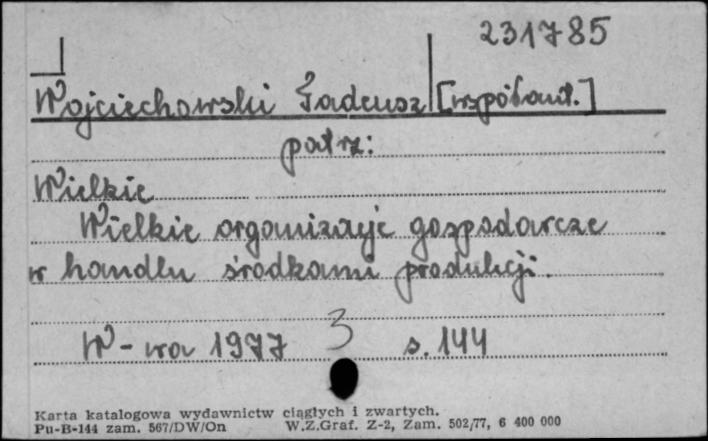 231785
Wojciechowski Tadeusz [współaut.]
patrz:
Wielkie
Wielkie organizacje gospodarcze
w handlu środkami produkcji.
W-wa 1977 3 s. 144
Karta katalogowa wydawnictw ciągłych i zwartych.
Pu-B-144 zam. 567/DW/On W.Z.Graf. Z-2, Zam. 502/77, 6 400 000